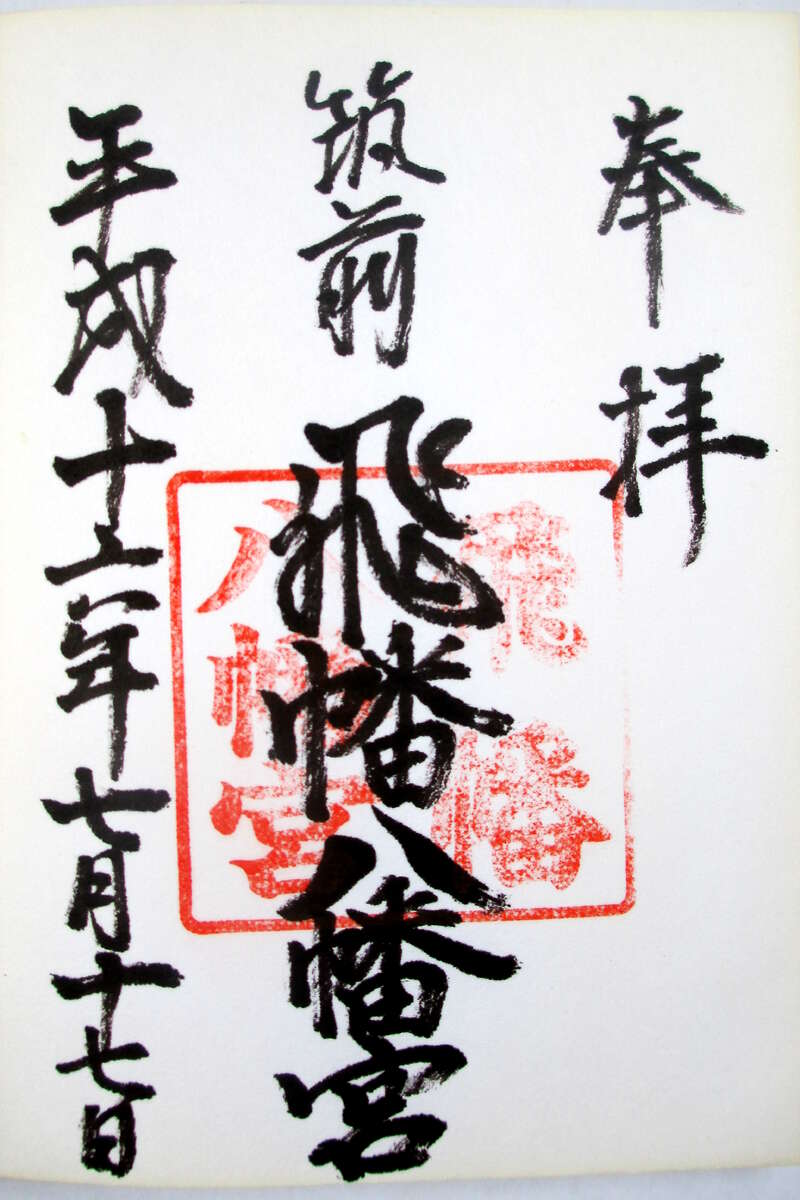 奉拝
筑前飛幡八幡宮
平成十六年七月十七日
飛幡
八幡宮